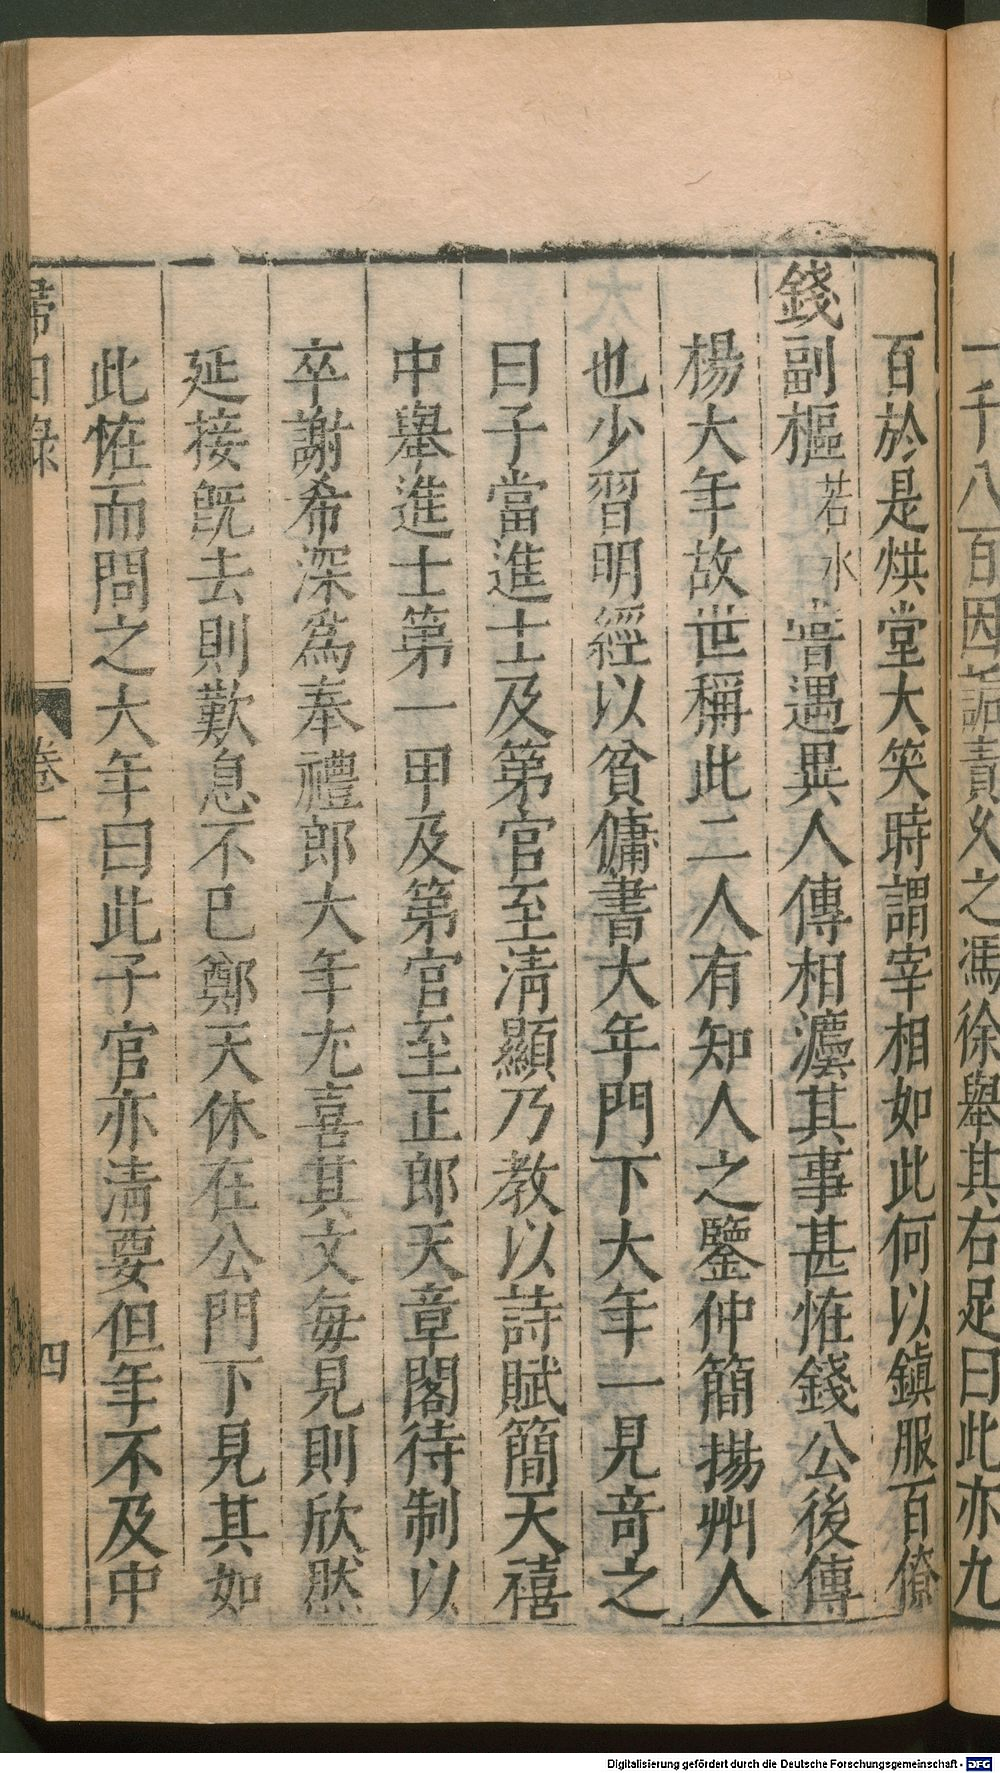 一千八百因詬責久之馮徐舉其右足曰此亦九
百於是烘堂大笑時謂宰相如此何以鎮服百僚
錢副樞若水甞遇異人傳相灋其事甚恠錢公後傳
楊大年故世稱此二人有知人之鑒仲簡揚州人
也少習明經以貧傭書大年門下大年一見竒之
曰子當進士及第官至清顯乃教以詩賦簡天禧
中舉進士第一甲及第官至正郎天章閣待制以
卒謝希深爲奉禮郎大年尤喜其文每見則欣然
延接旣去則歎息不已鄭天休在公門下見其如
此恠而問之大年曰此子官亦清要但年不及中
歸田錄 卷一 四
Digitalisierung gefördert durch die Deutsche Forschungsgemeinschaft - DFG